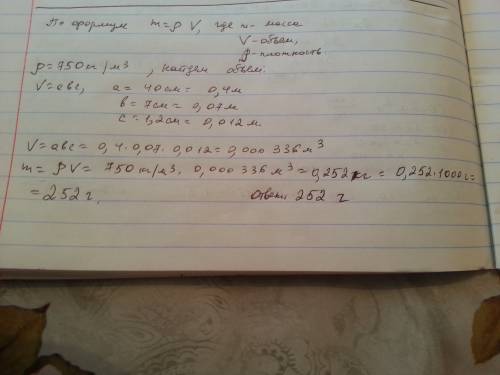 По формуле m=ρ V, где m- масса
V-объем,
ρ-плотность.
ρ=750кг/м³ , найдем объем:
V=abc, a= 40см= 0,4м
b= 7см= 0,07м
c= 1,2см= 0,012м.
V=abc= 0,4·0,07·0,012=0,000 336м³
m= ρV= 750кг/м³· 0,000336м³=0,252кг= 0,252·1000г=
=252г. Ответ: 252 г